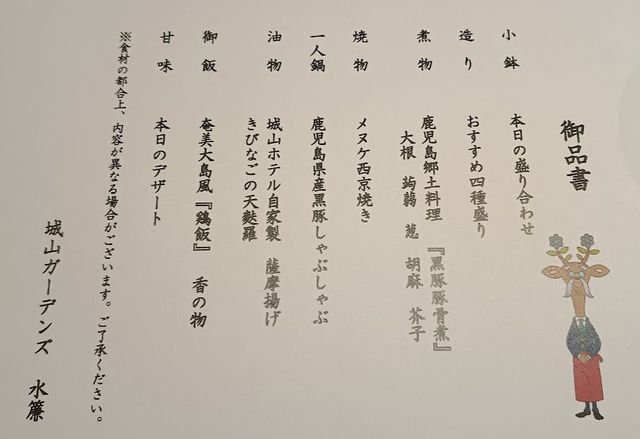 御品書
小鉢　本日の盛り合わせ
造り　おすすめ四種盛り
煮物　鹿児島郷土料理　『黒豚豚骨煮』
大根　蒟蒻　葱　胡麻　芥子
焼物　メヌケ西京焼き
一人鍋　鹿児島県産黒豚しゃぶしゃぶ
油物　城山ホテル自家製　薩摩揚げ
きびなごの天麩羅
御飯　奄美大島風『鶏飯』　香の物
甘味　本日のデザート
※食材の都合上、内容が異なる場合がございます。ご了承ください。
城山ガーデンズ　水簾